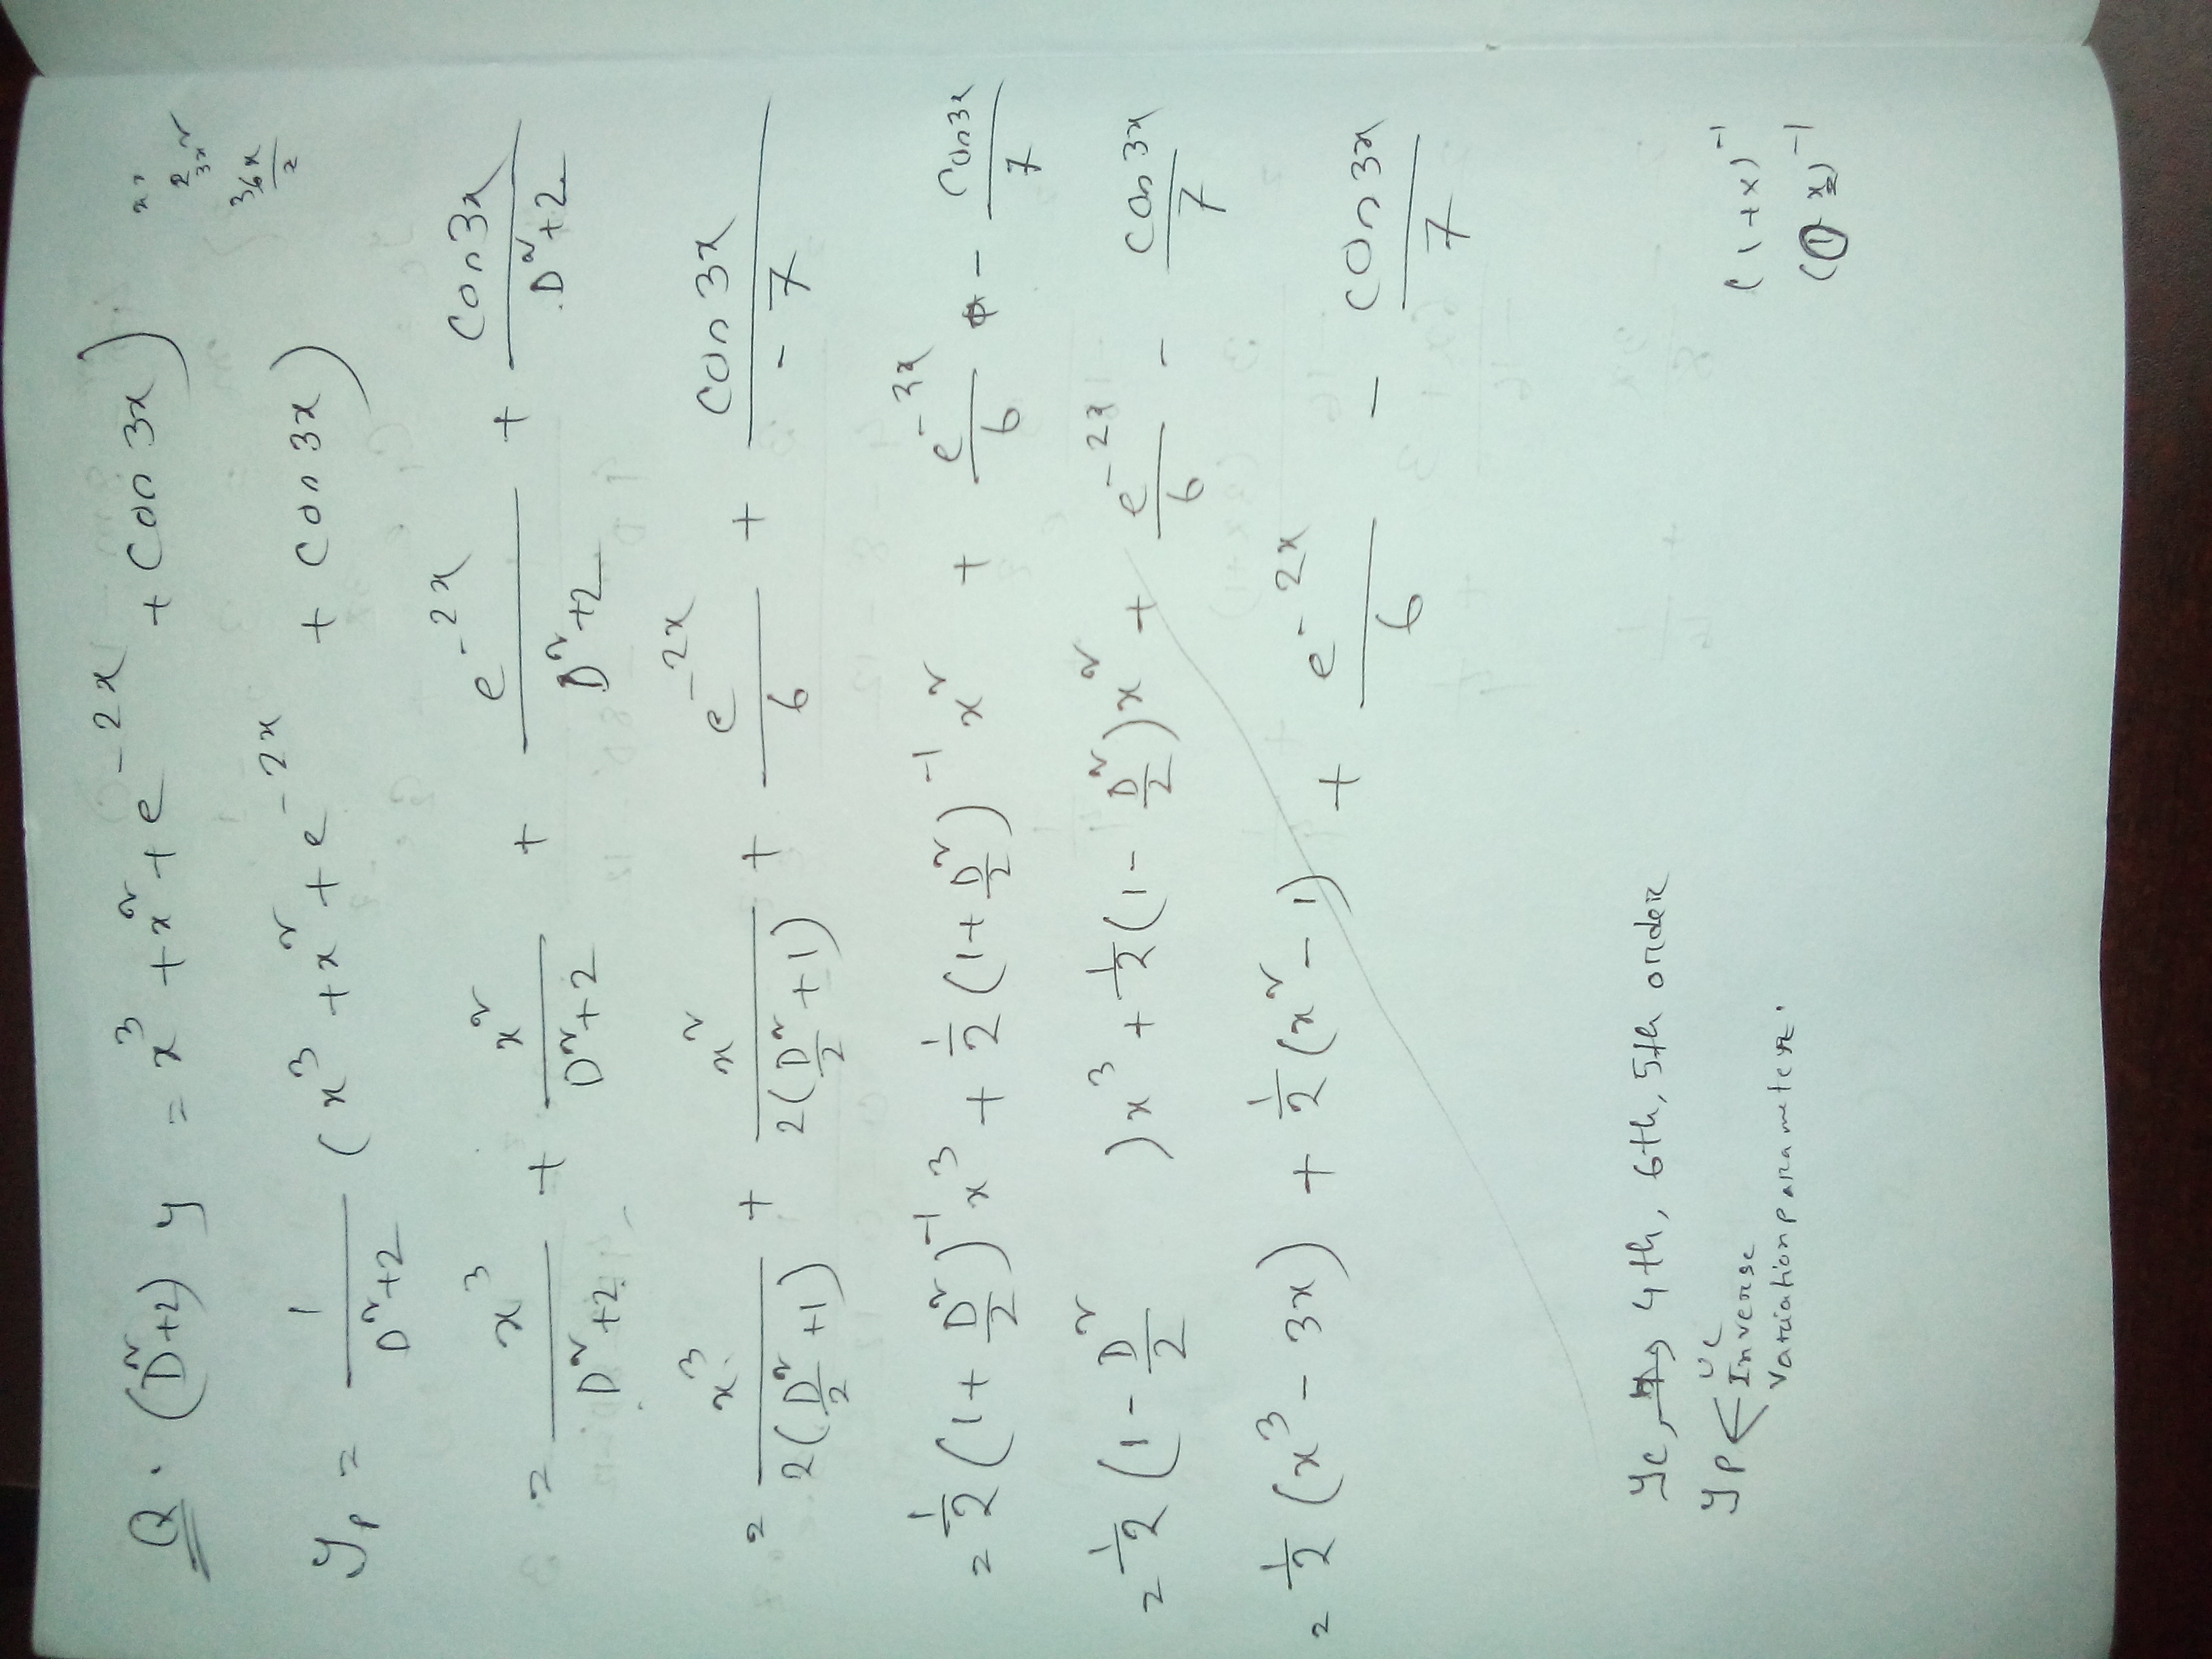 Q. (D² + 2) y = x³ + x² + e^{-2x} + cos 3x)
y_p = \frac{1}{D² + 2} (x³ + x² + e^{-2x} + cos 3x)
= \frac{x³}{D² + 2} + \frac{x²}{D² + 2} + \frac{e^{-2x}}{D² + 2} + \frac{cos 3x}{D² + 2}
= \frac{x³}{2(\frac{D²}{2} + 1)} + \frac{x²}{2(\frac{D²}{2} + 1)} + \frac{e^{-2x}}{6} + \frac{cos 3x}{-7}
= \frac{1}{2} (1 + \frac{D²}{2})^{-1} x³ + \frac{1}{2} (1 + \frac{D²}{2})^{-1} x² + \frac{e^{-3x}}{6} - \frac{cos 3x}{7}
= \frac{1}{2} (1 - \frac{D²}{2} ) x³ + \frac{1}{2} (1 - \frac{D²}{2}) x² + \frac{e^{-2x}}{6} - \frac{cos 3x}{7}
= \frac{1}{2} (x³ - 3x) + \frac{1}{2} (x² - 1) + \frac{e^{-2x}}{6} - \frac{cos 3x}{7}
y_c, 4th, 6th, 5th order
y_p < UC
Inverse
Variation parameter.
(1+x)^{-1}